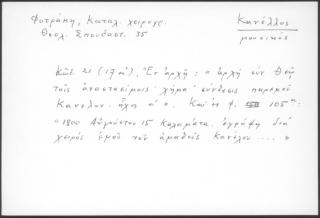 Φυτράκη, Καταλ. χειρογρ.
Θεολ. Σπουδαστ. 35
Κανέλλος
μουσικός
Κῶδ 21 (17 α'), Ἐν ἀρχῇ: « ἀρχή σὺν Θεῷ
τοῖς ἀναστασίμοις σύνθεσις παρεμοῦ
Κανελου. ἦχος α' ». Καὶ ἐν φ. 105
«1800 Αὐγούστου 15 Καλαμάτα. ἐγράφη διὰ
χειρός ἐμοῦ τοῦ ἀμαθοῦς Κανέλου .... »